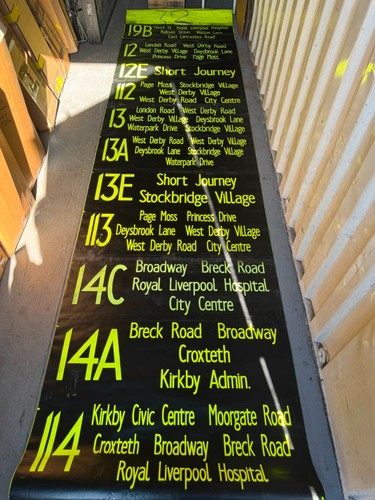 19B
Royal Liverpool Hospital
East Lancashire Road
12
London Road West Derby Road
West Derby Village Deysbrook Lane
Princess Drive Page Moss
12E Short Journey
112
Page Moss Stockbridge Village
West Derby Village
West Derby Road City Centre
13
London Road West Derby Road
West Derby Village Deysbrook Lane
Waterpark Drive Stockbridge Village
13A
West Derby Road West Derby Village
Deysbrook Lane Stockbridge Village
Waterpark Drive
13E
Short Journey
Stockbridge Village
113
Page Moss Princess Drive
Deysbrook Lane West Derby Village
West Derby Road City Centre
14C
Broadway Breck Road
Royal Liverpool Hospital
City Centre
14A
Breck Road Broadway
Croxteth
Kirkby Admin.
114
Kirkby Civic Centre Moorgate Road
Croxteth Broadway Breck Road
Royal Liverpool Hospital